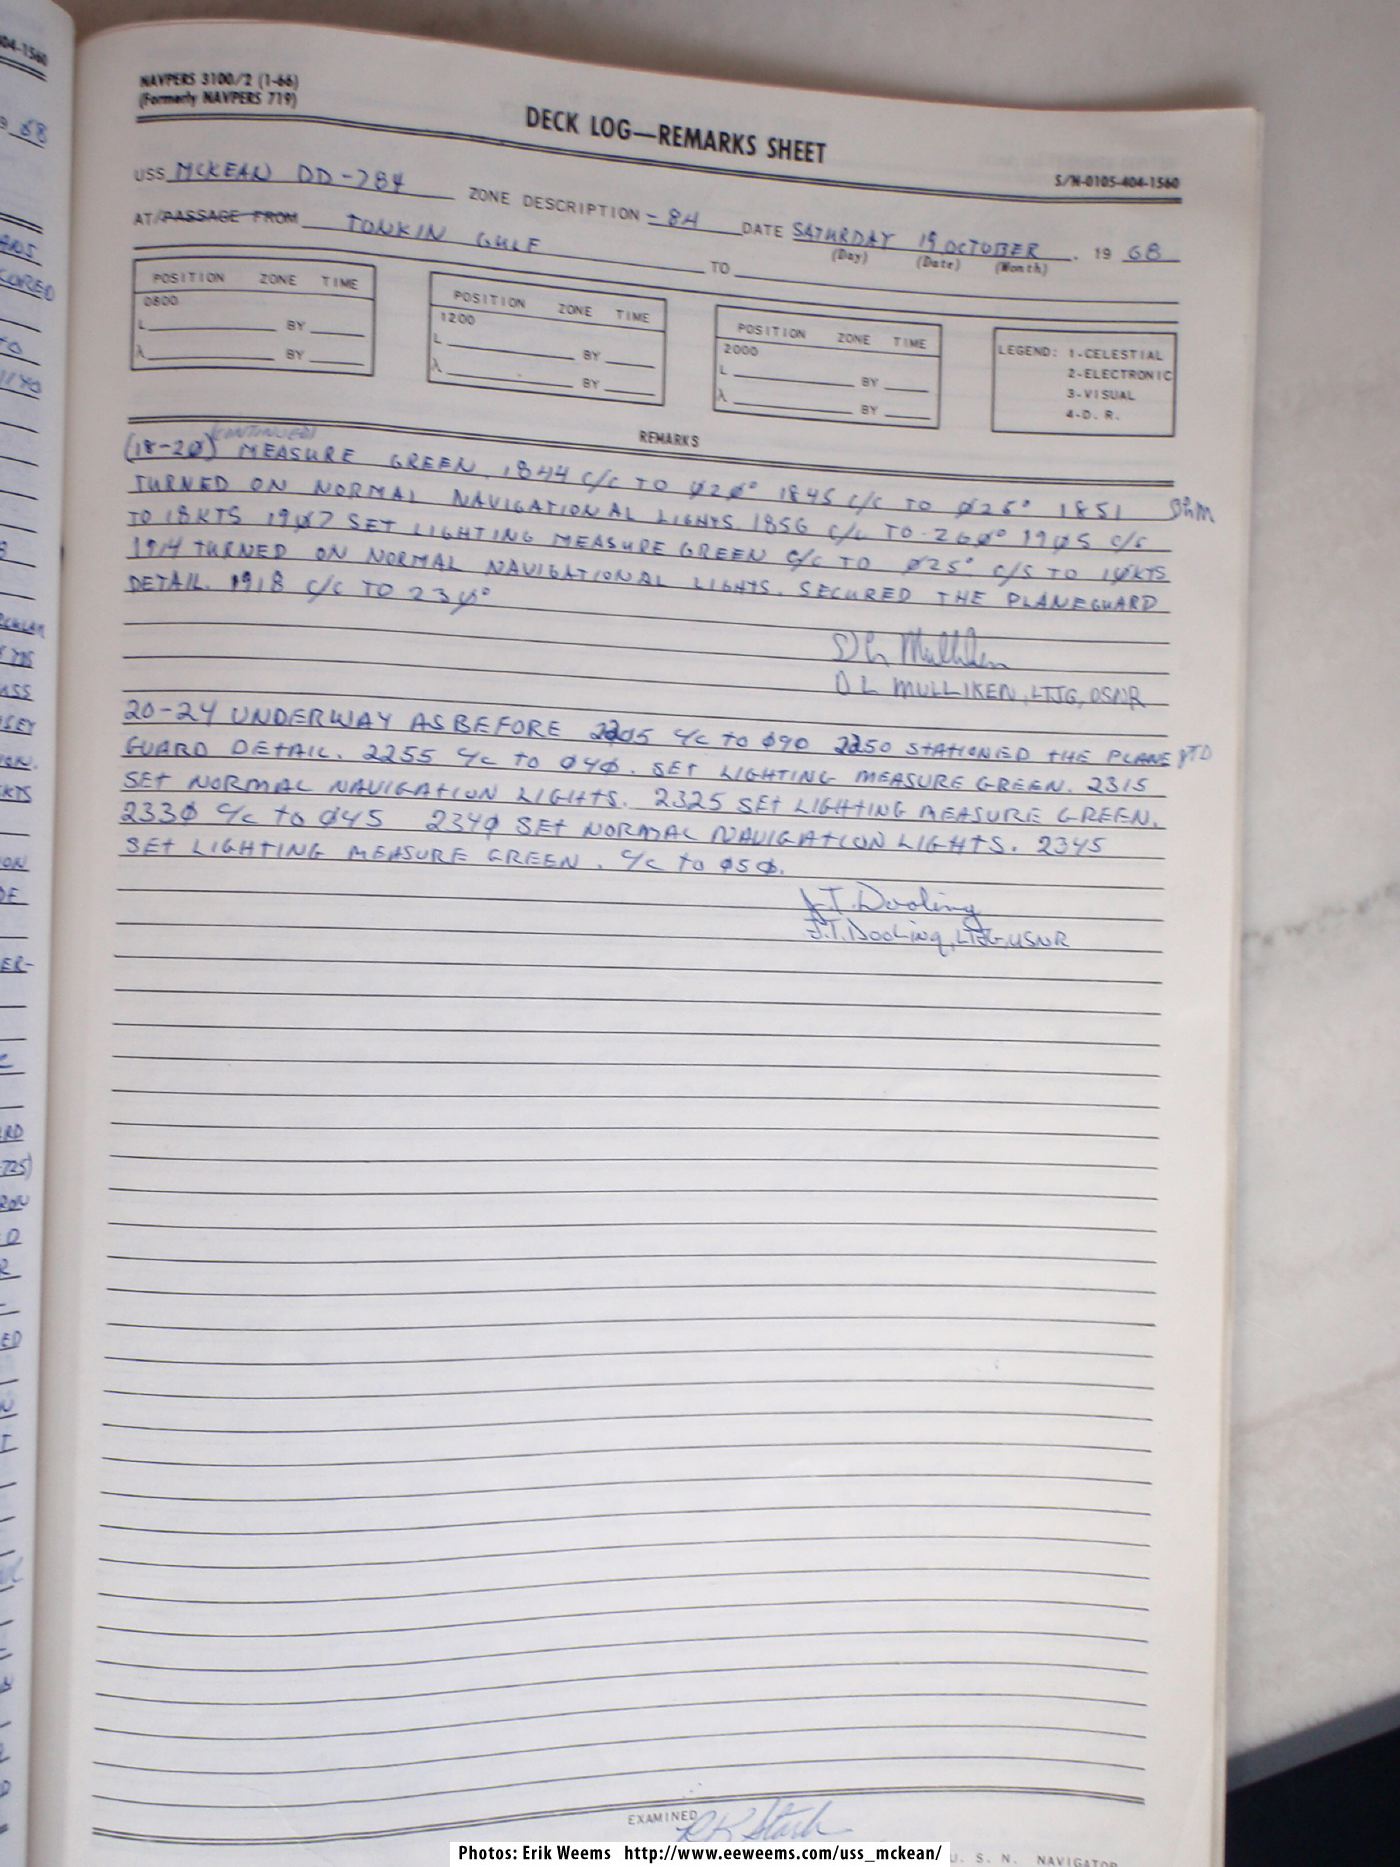 NAVPERS 3100/2 (1-66)
(Formerly NAVPERS 719)
DECK LOG—REMARKS SHEET
S/N-0105-404-1560
USS MCKEAN DD-784 ZONE DESCRIPTION -8H DATE SATURDAY 19 OCTOBER, 19 68
(Day) (Date) (Month)
AT/PASSAGE FROM TONKIN GULF TO
POSITION ZONE TIME
0800
L BY
λ BY
POSITION ZONE TIME
1200
L BY
λ BY
POSITION ZONE TIME
2000
L BY
λ BY
LEGEND: 1-CELESTIAL
2-ELECTRONIC
3-VISUAL
4-D. R.
REMARKS
(18-20) (CONTINUED) MEASURE GREEN. 1844 C/C TO 020° 1845 C/C TO 025° 1851
TURNED ON NORMAL NAVIGATIONAL LIGHTS. 1856 C/C TO 260° 1905 C/S
TO 18KTS 1907 SET LIGHTING MEASURE GREEN C/C TO 025° C/S TO 10KTS
1914 TURNED ON NORMAL NAVIGATIONAL LIGHTS. SECURED THE PLANEGUARD
DETAIL. 1918 C/C TO 230°
D L Mulliken
D L MULLIKEN, LTJG, USNR
20-24 UNDERWAY AS BEFORE 2205 C/C TO 090 2250 STATIONED THE PLANE
GUARD DETAIL. 2255 C/C TO 040. SET LIGHTING MEASURE GREEN. 2315
SET NORMAL NAVIGATION LIGHTS. 2325 SET LIGHTING MEASURE GREEN.
2330 C/C TO 045 2340 SET NORMAL NAVIGATION LIGHTS. 2345
SET LIGHTING MEASURE GREEN. C/C TO 050.
J.T. Dooling
J.T. Dooling, LTJG, USNR
EXAMINED
U. S. N. NAVIGATOR
Photos: Erik Weems http://www.eeweems.com/uss_mckean/